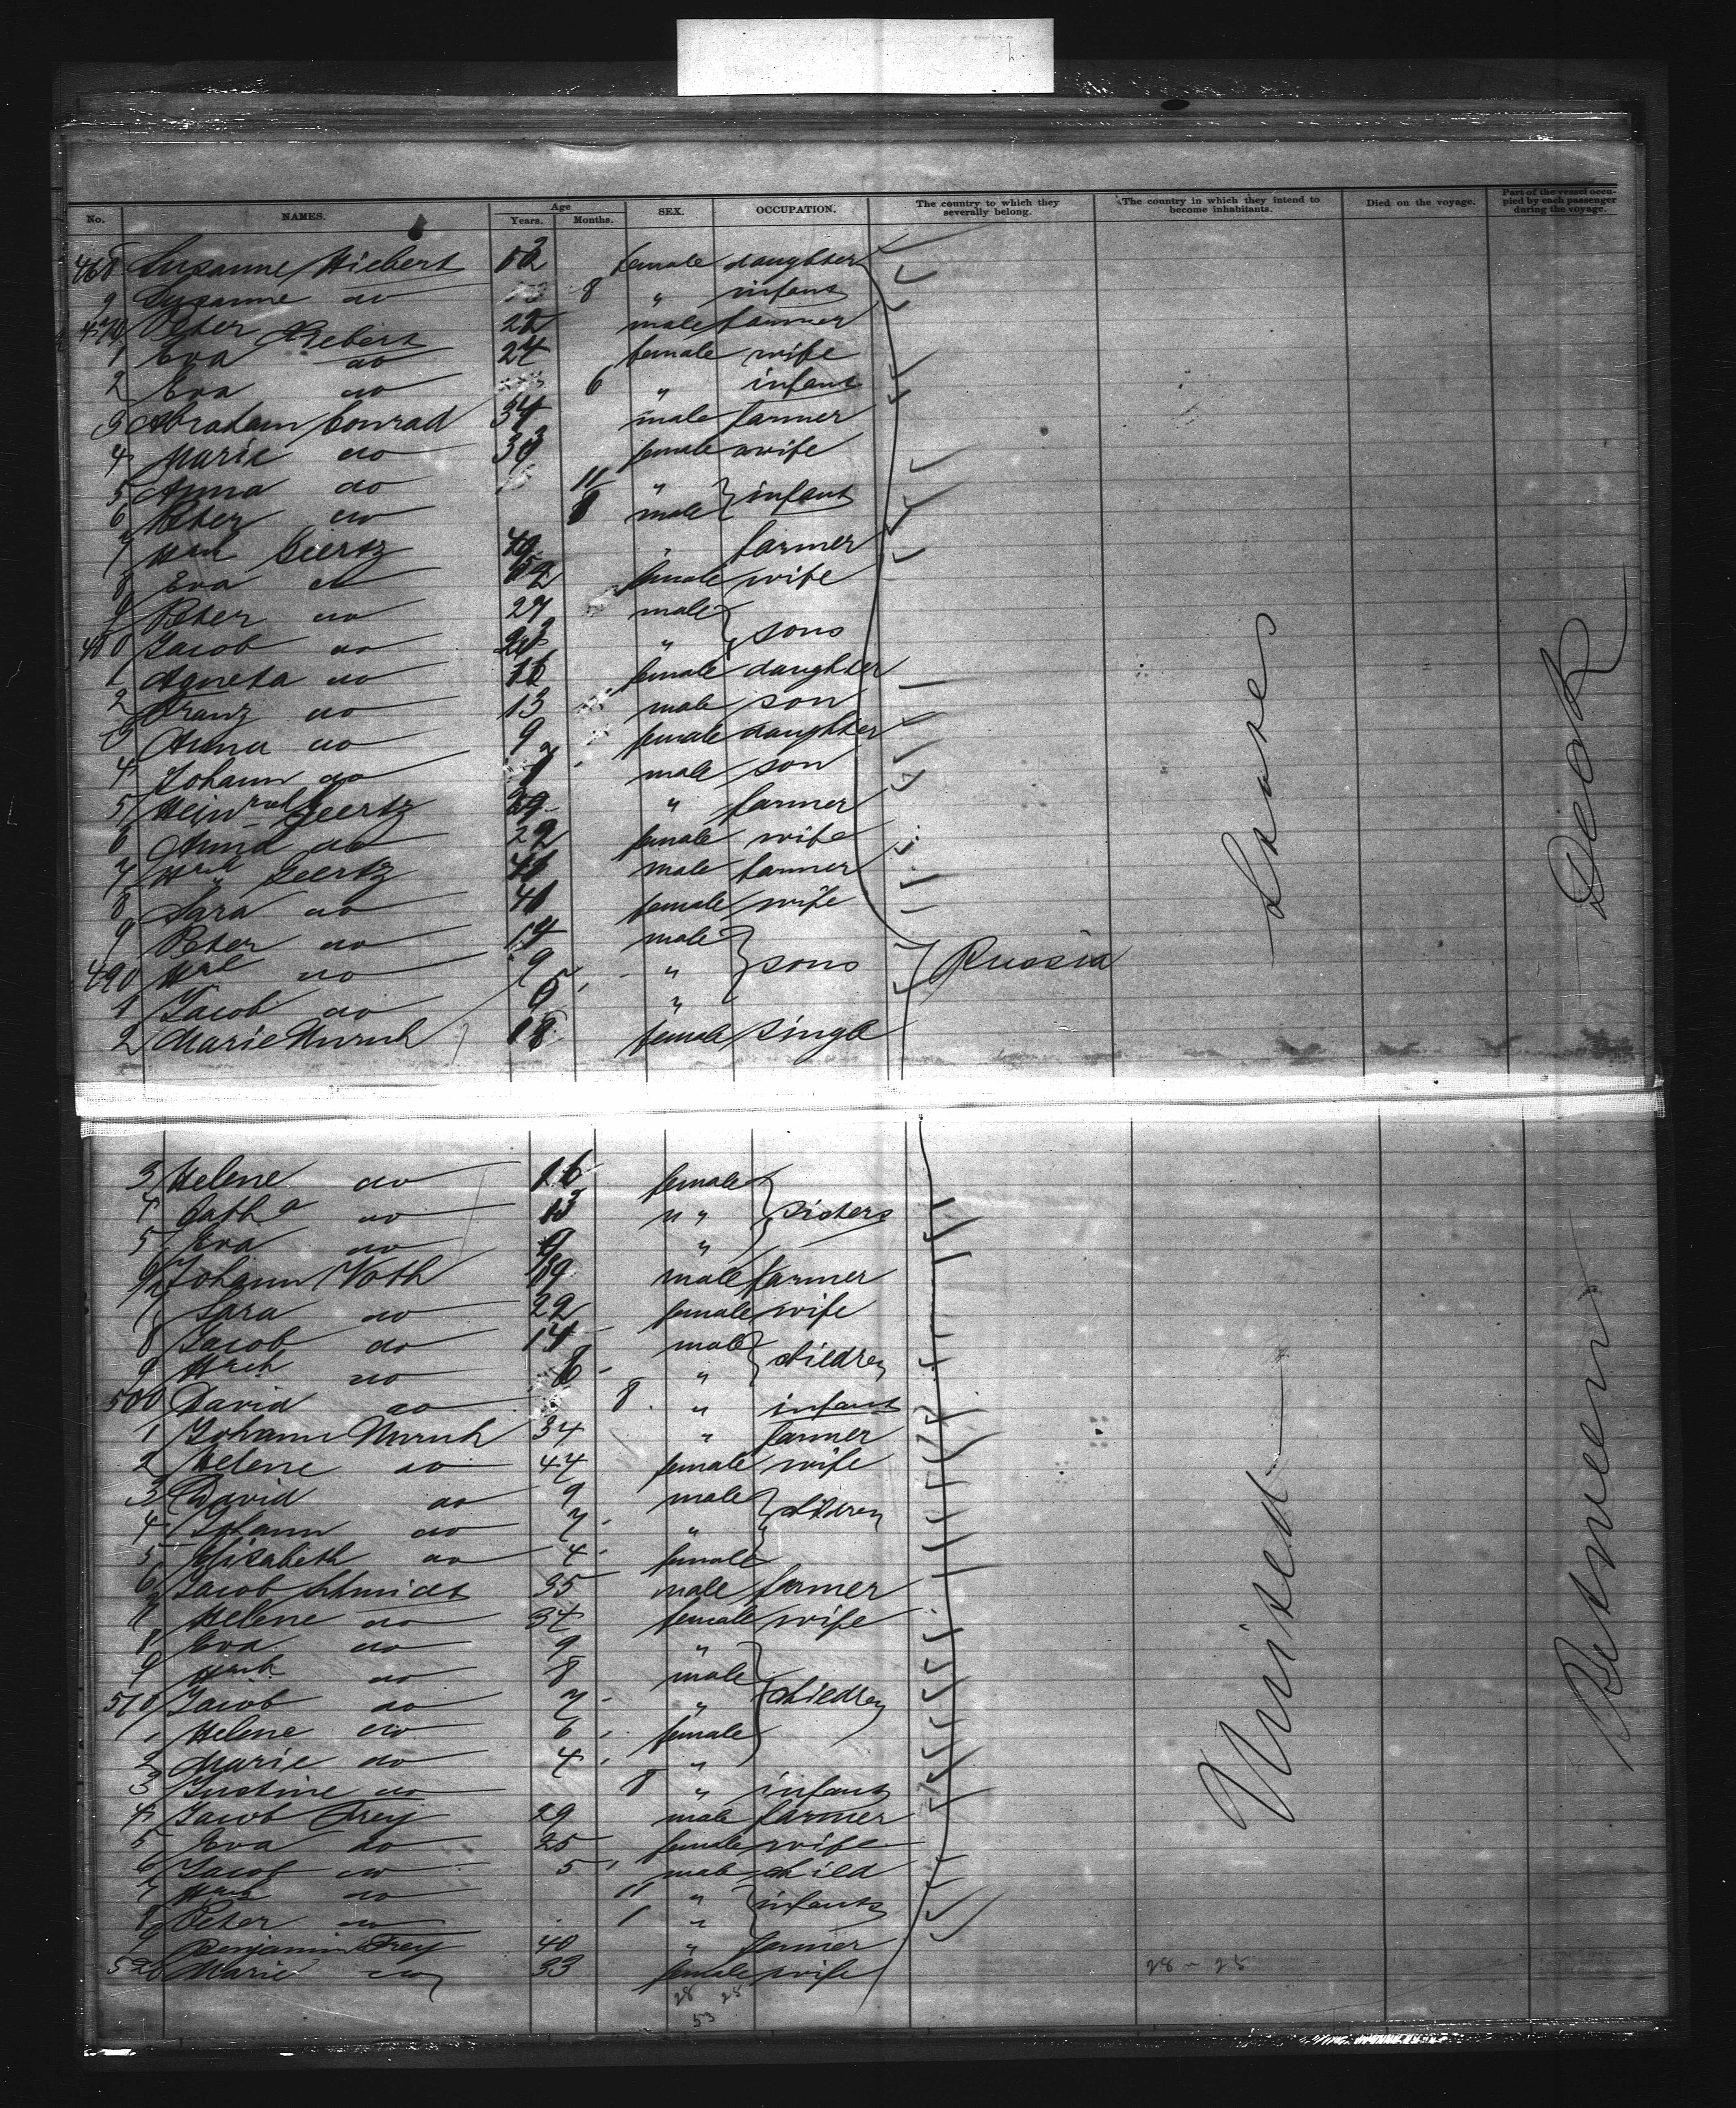 No. NAMES. Age Years. Months. SEX. OCCUPATION. The country to which they severally belong. The country in which they intend to become inhabitants. Died on the voyage. Part of the vessel occupied by each passenger during the voyage.
468 Susanne Hiebert female daughter
9 Susanne do 8 " infant
470 Peter Hiebert 22 male farmer
1 Eva do 24 female wife
2 Eva do 6 " infant
3 Abraham Conrad 34 male farmer
4 Marie do female wife
5 Anna do 11 " infant
6 Peter do 8 male
7 Hrch Geertz 49 " farmer
8 Eva do female wife
9 Peter do 27 male sons
480 Jacob do "
1 Agneta do 16 female daughter
2 Franz do 13 male son
3 Anna do 9 female daughter
4 Johann do 7 male son
5 Heinrich Geertz " farmer
6 Anna do 22 female wife
7 Hrch Geertz male farmer
8 Sara do female wife
9 Peter do 14 male sons
490 Hrch do 9 "
1 Jacob do "
2 Marie Unruh 18 female single
Russia
States
Deck
3 Helene do 16 female sisters
4 Catha do 13 " "
5 Eva do 9 "
6 Johann Voth male farmer
7 Sara do 22 female wife
8 Jacob do 14 male children
9 Hrch do "
500 David do 8 " infant
1 Johann Unruh 34 " farmer
2 Helene do 44 female wife
3 David do 9 male children
4 Johann do 7 " "
5 Elisabeth do 4 female
6 Jacob Schmidt 35 male farmer
7 Helene do 34 female wife
8 Eva do 9 "
9 Hrch do 8 male
510 Jacob do 7 " children
1 Helene do 6 female
2 Marie do 4 "
3 Justine do 8 " infant
4 Jacob Frey 29 male farmer
5 Eva do 25 female wife
6 Jacob do 5 male child
7 Hrch do 11 " infants
8 Peter do 1 "
9 Benjamin Frey 40 " farmer
520 Marie do 33 female wife
United
Between
28 - 25
28 25
53